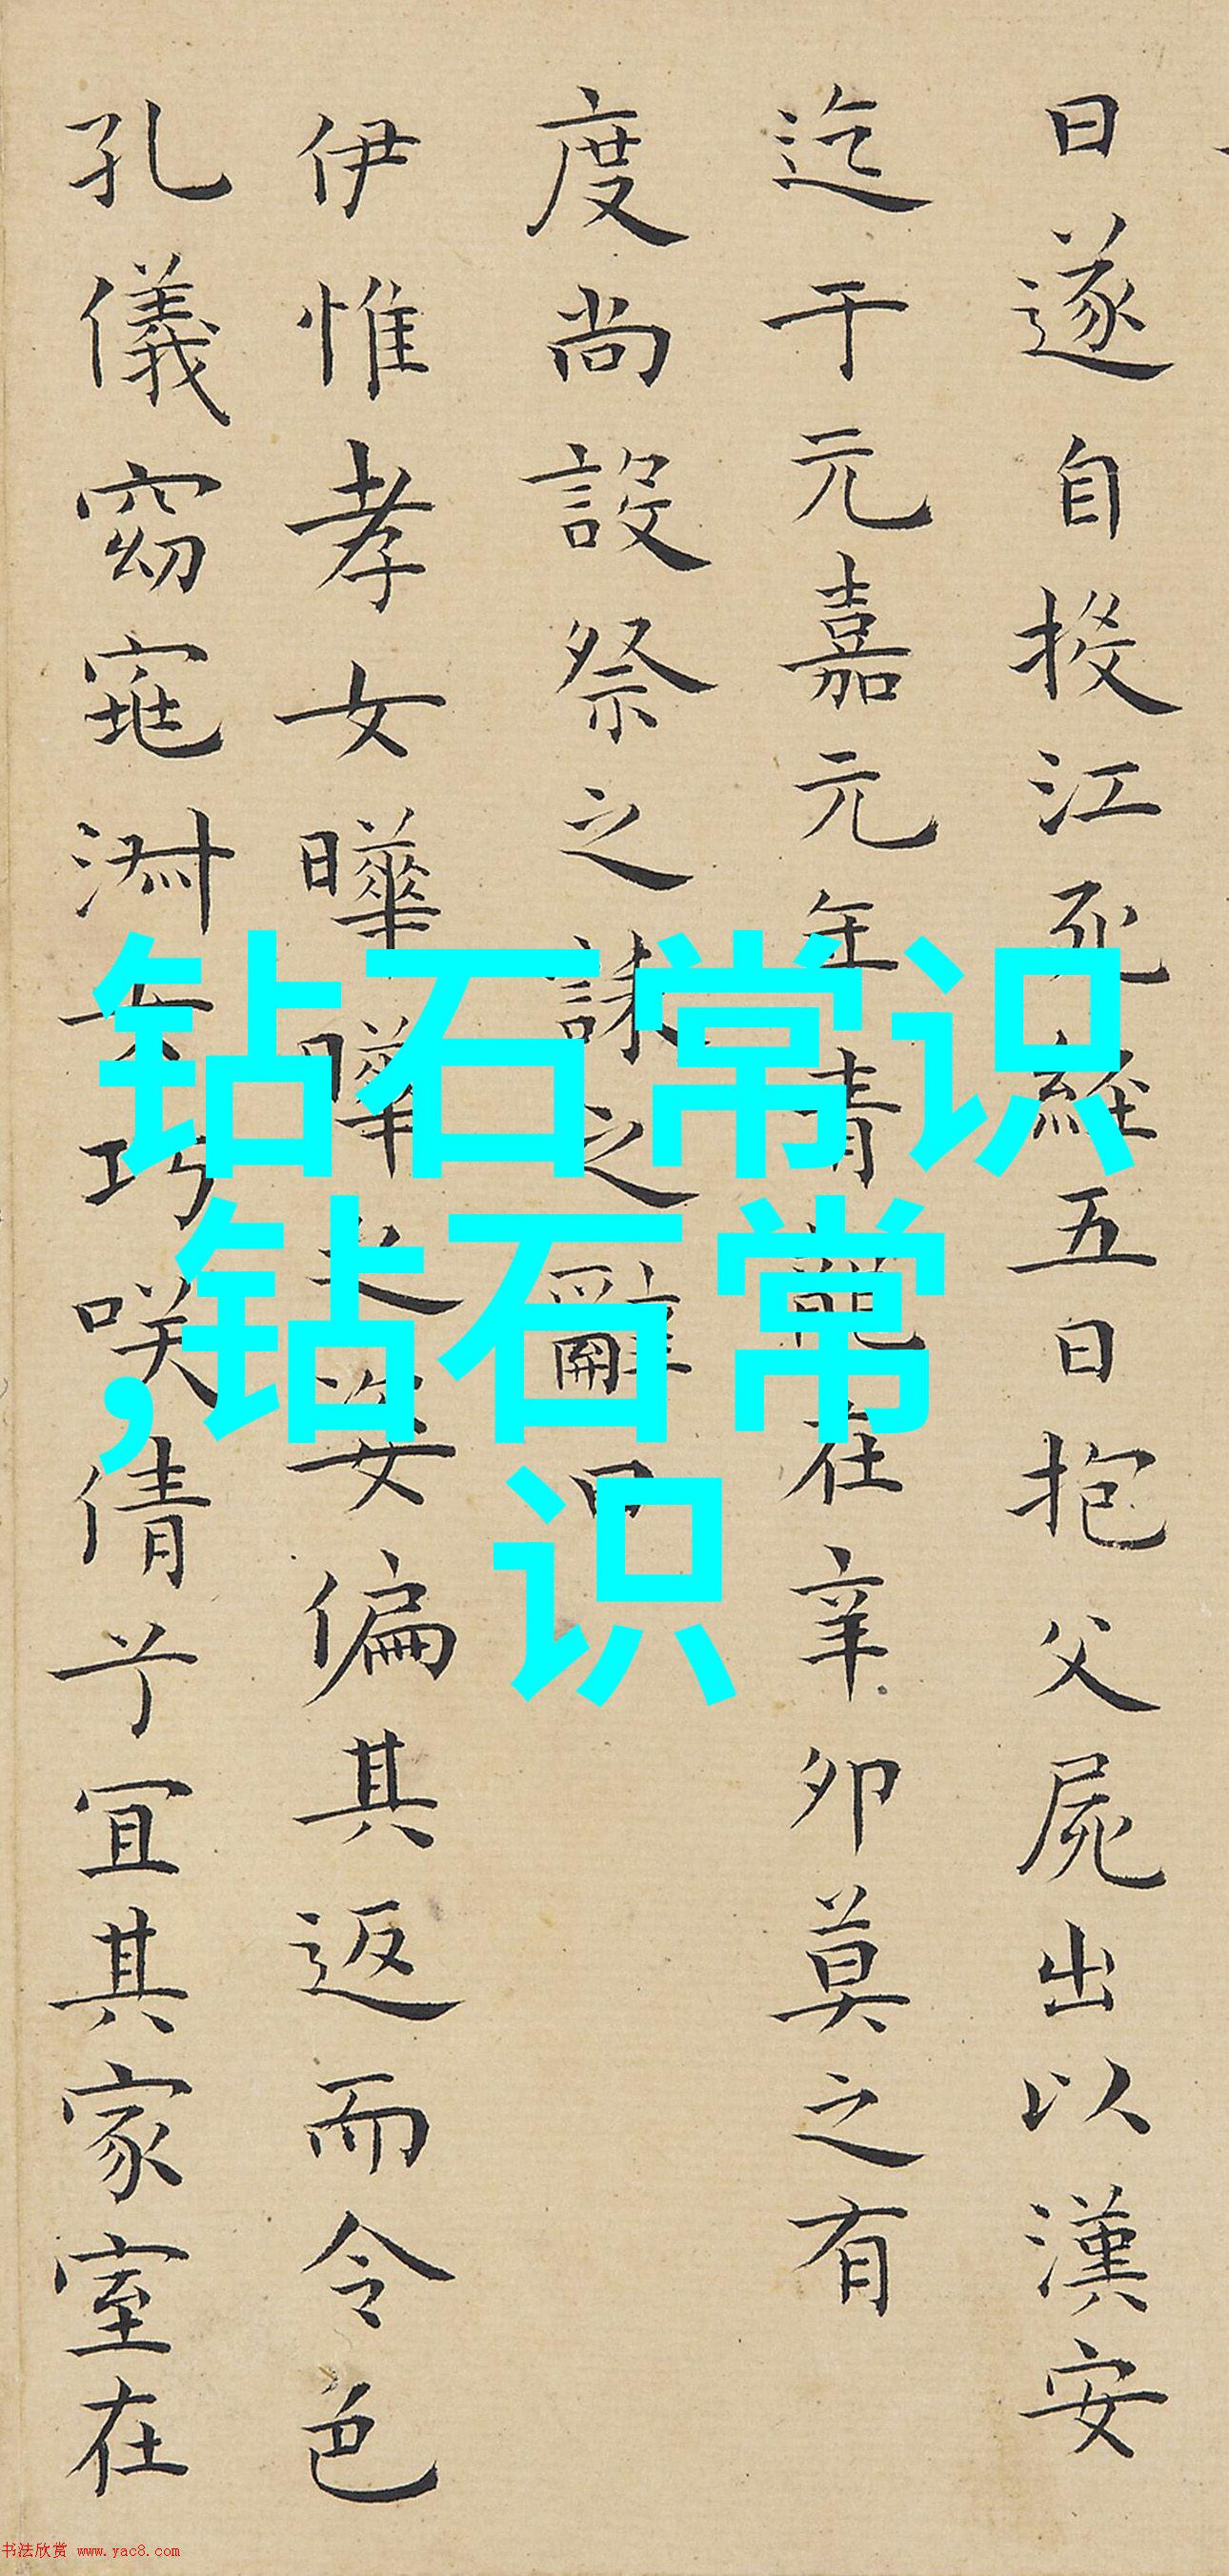 日遂自投江死經五日抱父屍出以漢安
迄于元嘉元年青龍在辛卯莫之有
度尚設祭之誄之辭曰
伊惟孝女曄曄之姿偏其返而令色
孔儀窈窕淑女巧咲倩兮宜其家室在
钻石常识
,钻石常
识
书法欣赏 www.yac8.com